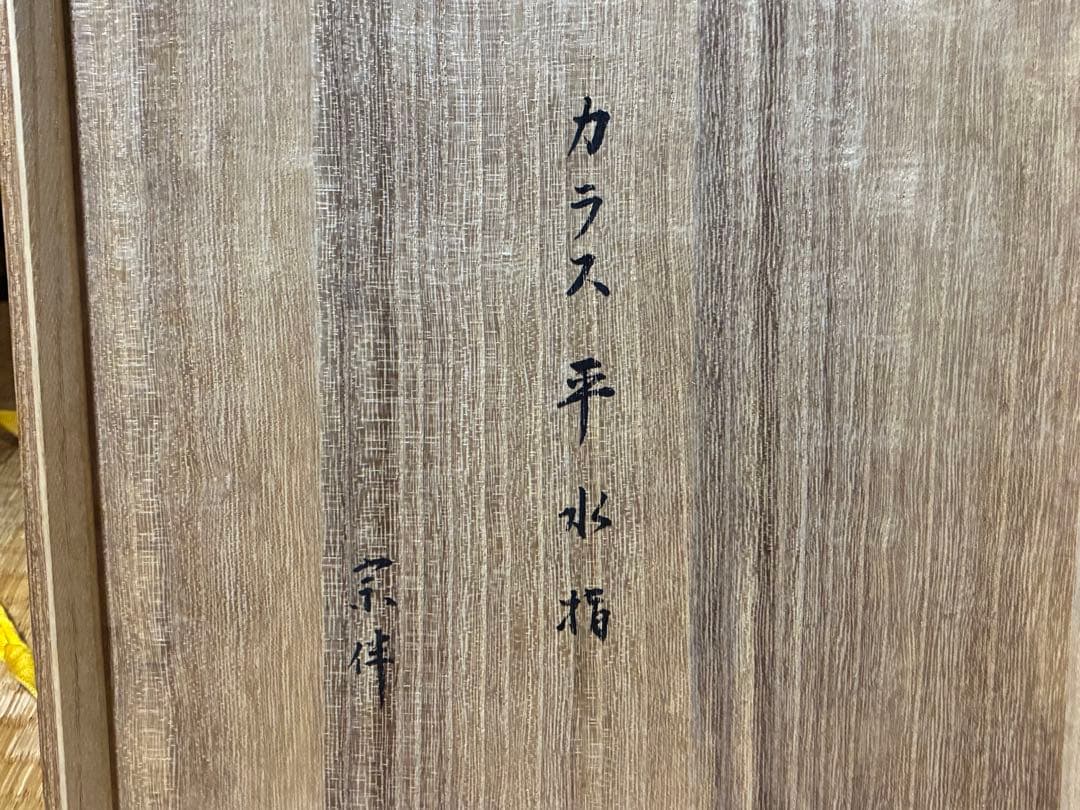 カラス 平水指
宗伴